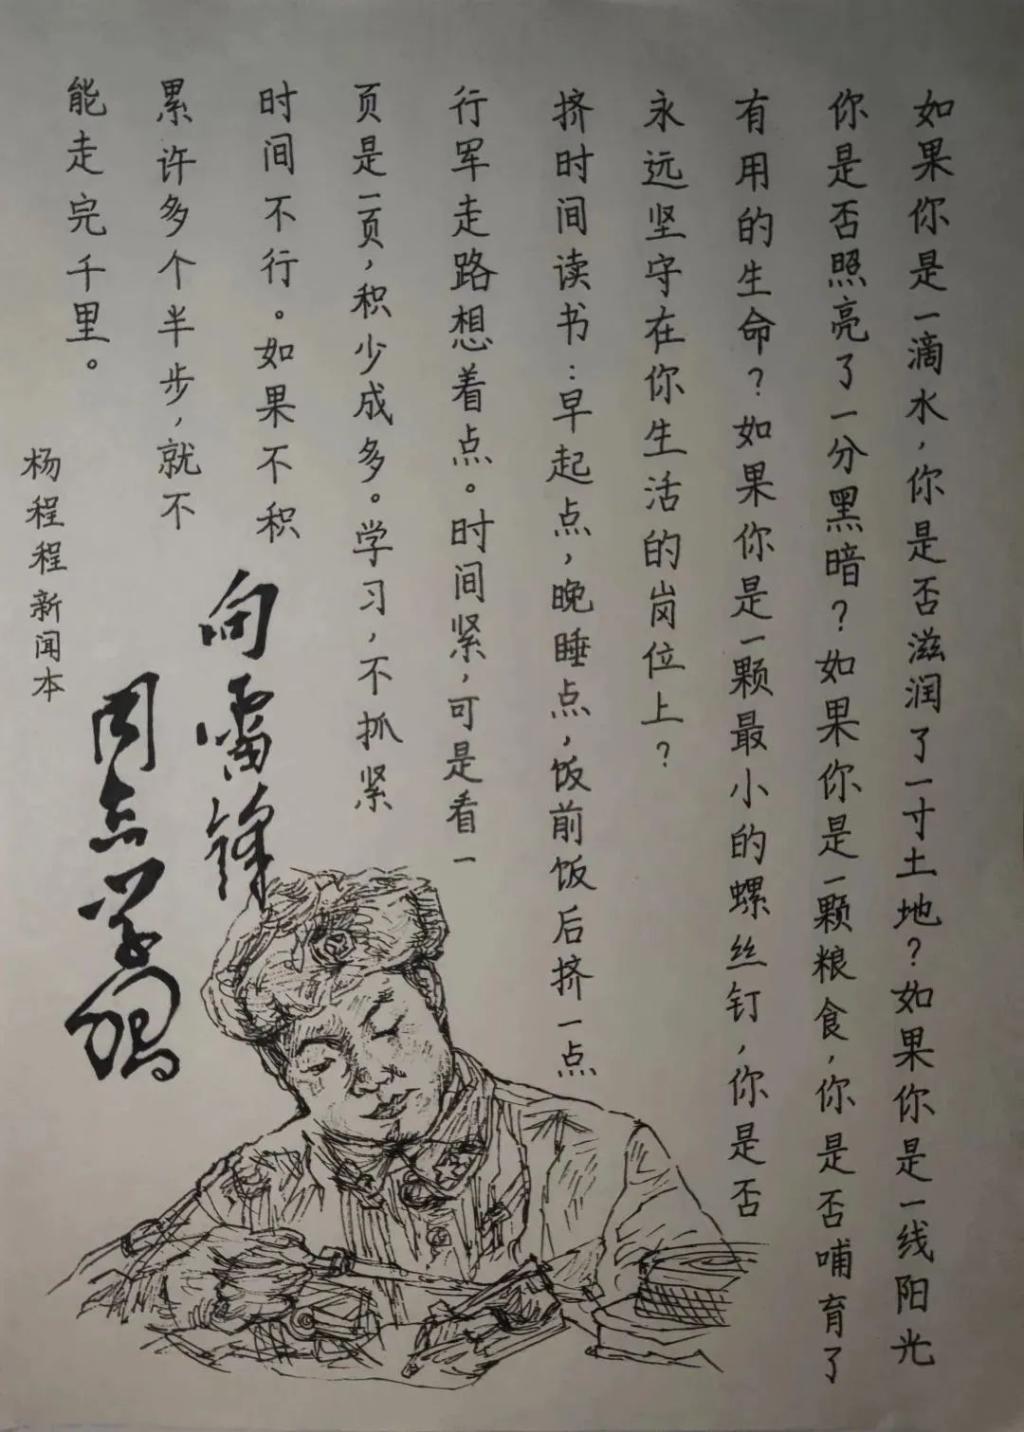 如果你是一滴水，你是否滋润了一寸土地？如果你是一线阳光
你是否照亮了一分黑暗？如果你是一颗粮食，你是否哺育了
有用的生命？如果你是一颗最小的螺丝钉，你是否
永远坚守在你生活的岗位上？
挤时间读书：早起点，晚睡点，饭前饭后挤一点
行军走路想着点。时间紧，可是看一
页是一页，积少成多。学习，不抓紧
时间不行。如果不积
累许多个半步，就不
能走完千里。
向雷锋
同志学习
杨程程新闻本